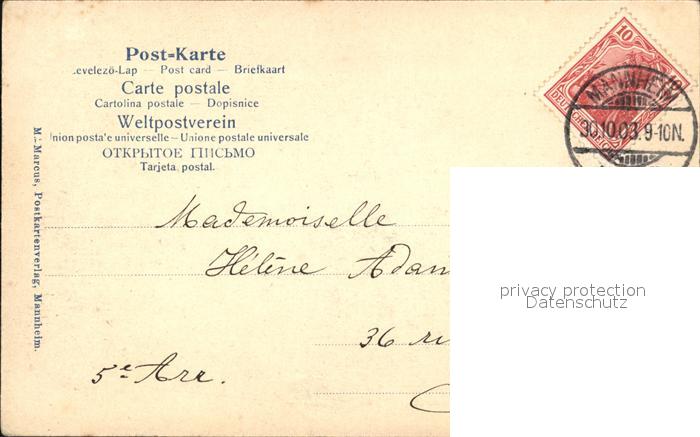 Post=Karte
.evelező-Lap — Post card — Briefkaart
Carte postale
Cartolina postale — Dopisnice
Weltpostverein
nion postale universelle — Unione postale universale
ОТКРЫТОЕ ПИСЬМО
Tarjeta postal.
M. Marcus, Postkartenverlag, Mannheim.
10
10
DEUTSCHES REICH
MANNHEIM
30.10.03. 9-10N.
Mademoiselle
Hélène Adan
36 ru
5e Arr.
privacy protection
Datenschutz